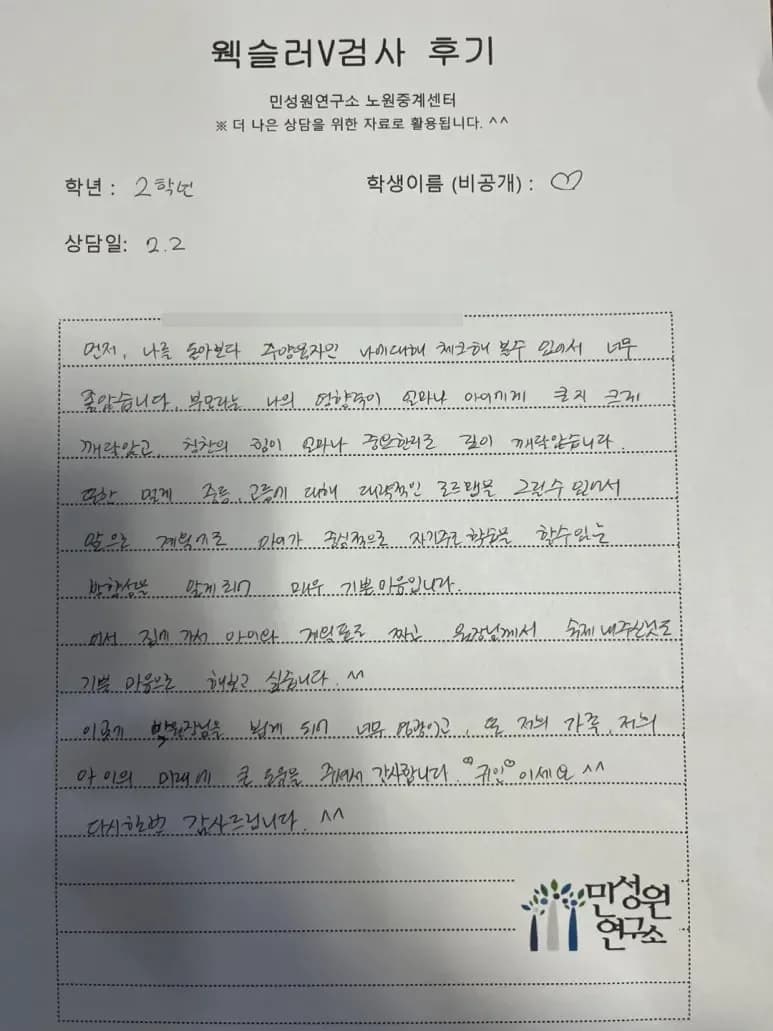 웩슬러V검사 후기
민성원연구소 노원중계센터
※ 더 나은 상담을 위한 자료로 활용됩니다. ^^
학년 : 2학년
학생이름 (비공개) : ♡
상담일: 2.2
먼저, 나를 돌아보다 주양육자인 나에대해 체크해 볼수 있어서 너무
좋았습니다. 부모라는 나의 영향력이 얼마나 아이에게 클지 크게
깨달았고, 칭찬의 힘이 얼마나 중요한지도 깊이 깨달았습니다.
또한 멀게 중등, 고등에 대해 대략적인 로드맵을 그릴수 있어서
앞으로 계획지도 아이가 중심적으로 자기주도학습을 할수있는
방향성을 알게 되어 매우 기쁜마음입니다.
어서 집에 가서 아이와 계획표도 짜고 원장님께서 숙제 내주신것도
기쁜 마음으로 해보고 싶습니다. ^^
이렇게 박원장님을 뵙게 되어 너무 영광이고, 또 저의 가족, 저의
아이의 미래에 큰 도움을 주셔서 감사합니다. ♡귀인♡이세요 ^^
다시한번 감사드립니다. ^^
민성원
연구소